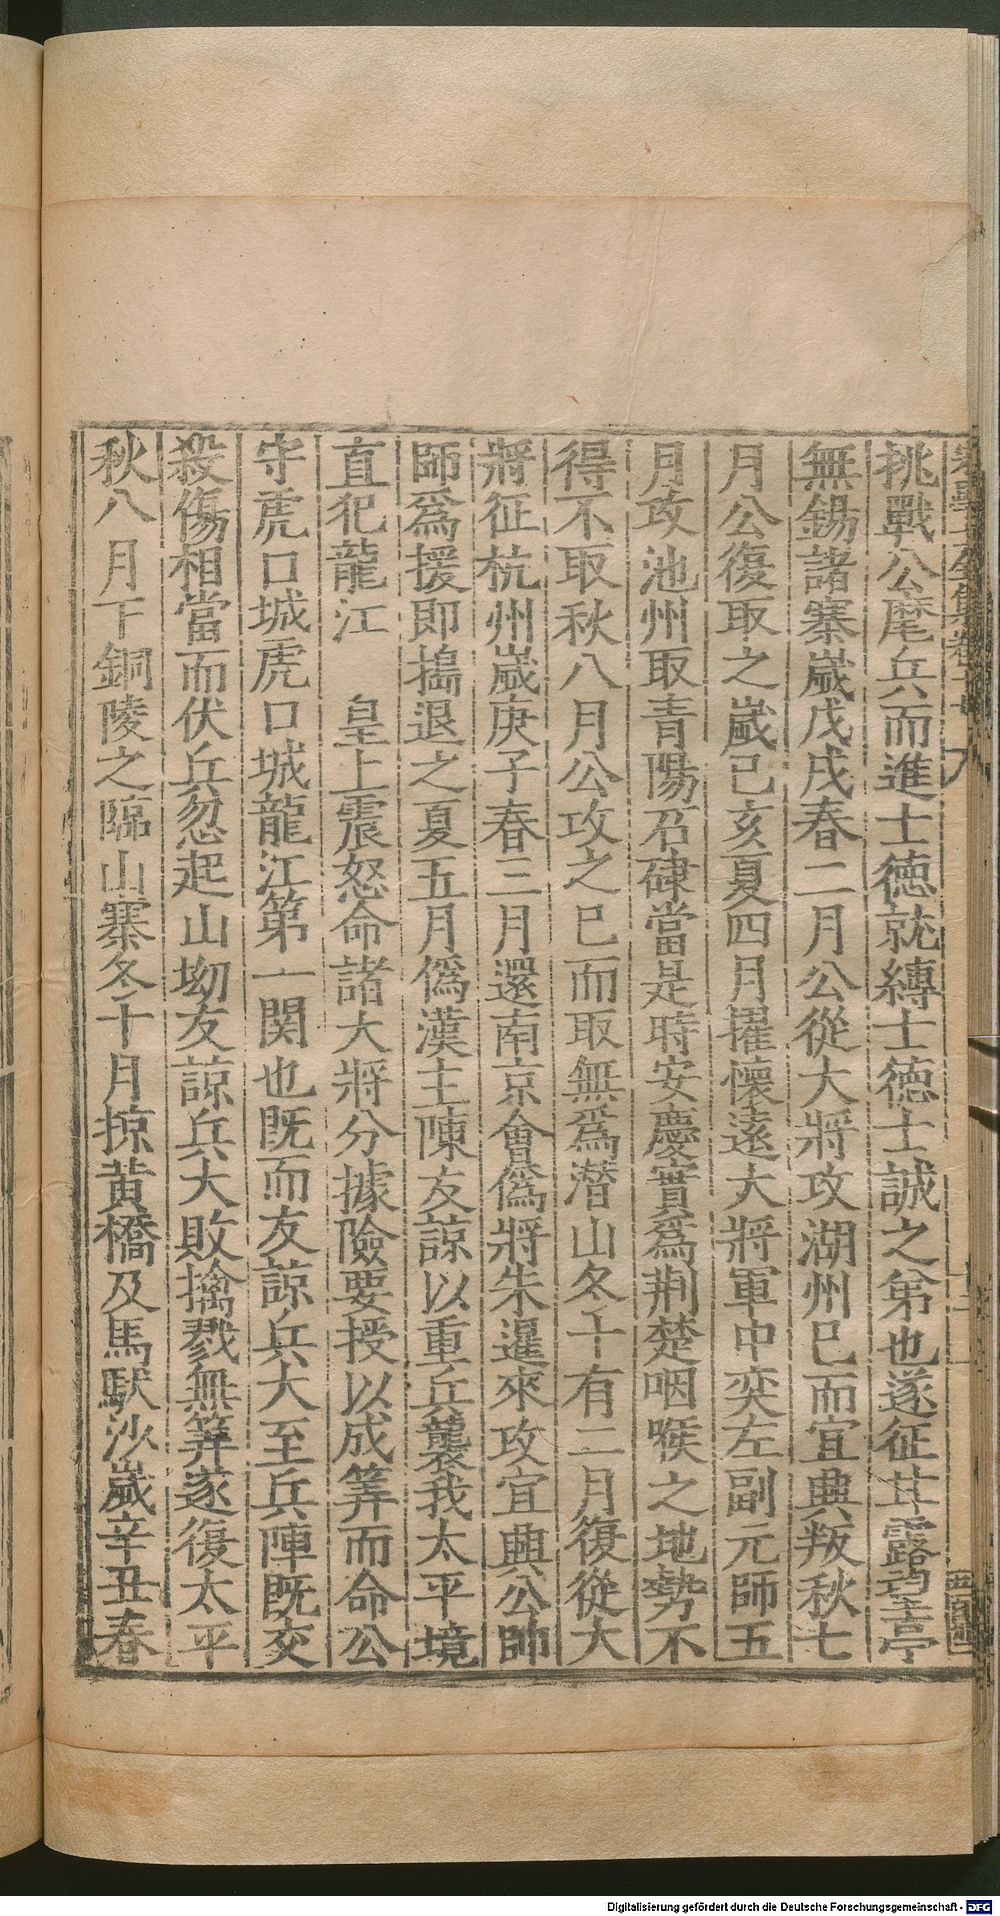 挑戰公麾兵而進士德就縛士德士誠之第也遂征甘露望亭
無錫諸寨歲戊戌春二月公從大將攻湖州巳而宜興叛秋七
月公復取之歲己亥夏四月擢懷遠大將軍中奕左副元師五
月攻池州取青陽召碑當是時安慶實爲荆楚咽喉之地勢不
得不取秋八月公攻之巳而取無爲潛山冬十有二月復從大
將征杭州歲庚子春三月還南京會僞將朱暹來攻宜興公帥
師爲援即搗退之夏五月僞漢主陳友諒以重兵襲我太平境
直犯龍江　皇上震怒命諸大將分據險要授以成筭而命公
守虎口城虎口城龍江第一関也既而友諒兵大至兵陣既交
殺傷相當而伏兵忽起山坳友諒兵大敗擒戮無筭遂復太平
秋八月下銅陵之臨山寨冬十月掠黃橋及馬䭾沙歲辛丑春
Digitalisierung gefördert durch die Deutsche Forschungsgemeinschaft - DFG